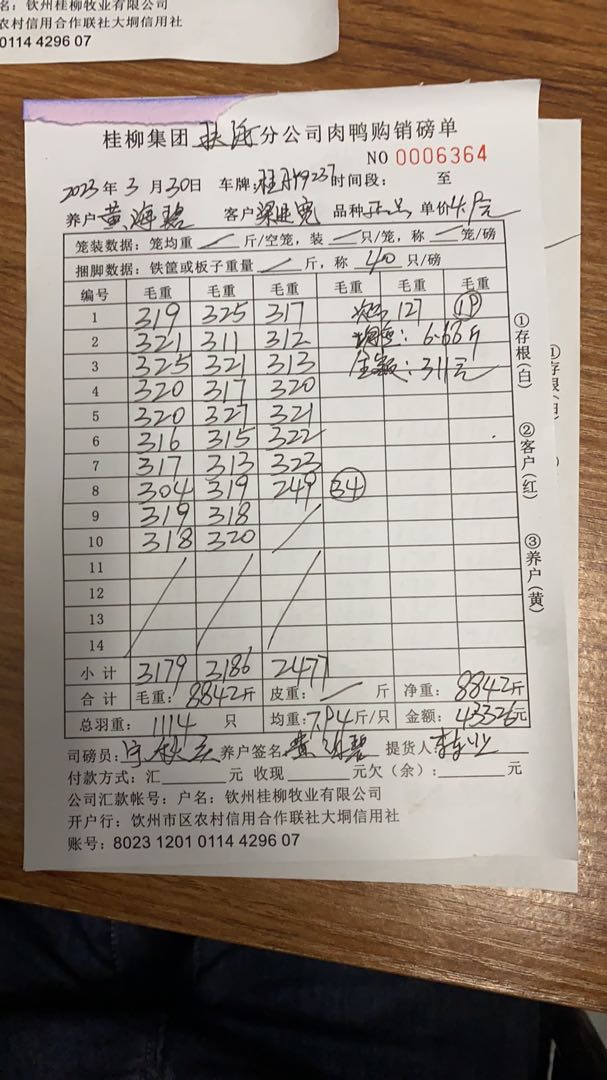 名：钦州桂柳牧业有限公司
农村信用合作联社大垌信用社
0114 4296 07
桂柳集团 分公司肉鸭购销磅单
NO 0006364
2023年3月30日 车牌: 237 时间段: 至
养户 黄海碧 客户 品种 正品 单价 4.9元
笼装数据: 笼均重 / 斤/空笼，装 / 只/笼，称 / 笼/磅
捆脚数据: 铁筐或板子重量 / 斤，称 40 只/磅
编号 毛重 毛重 毛重 毛重 毛重 毛重
1 319 325 317 127 19
2 321 311 312 均重: 6.68斤
3 325 321 313 金额: 311元
4 320 317 320
5 320 327 321
6 316 315 322
7 317 313 323
8 304 319 249 34
9 319 318 /
10 318 320
11 / / /
12
13
14
小计 3179 3186 2477
合计 毛重: 8842斤 皮重: / 斤 净重: 8842斤
总羽重: 1114 只 均重: 7.94斤/只 金额: 43326元
司磅员: 养户签名: 黄海碧 提货人
付款方式: 汇 元 收现 元欠（余）: 元
公司汇款帐号: 户名: 钦州桂柳牧业有限公司
开户行: 钦州市区农村信用合作联社大垌信用社
账号: 8023 1201 0114 4296 07
①存根(白)
②客户(红)
③养户(黄)